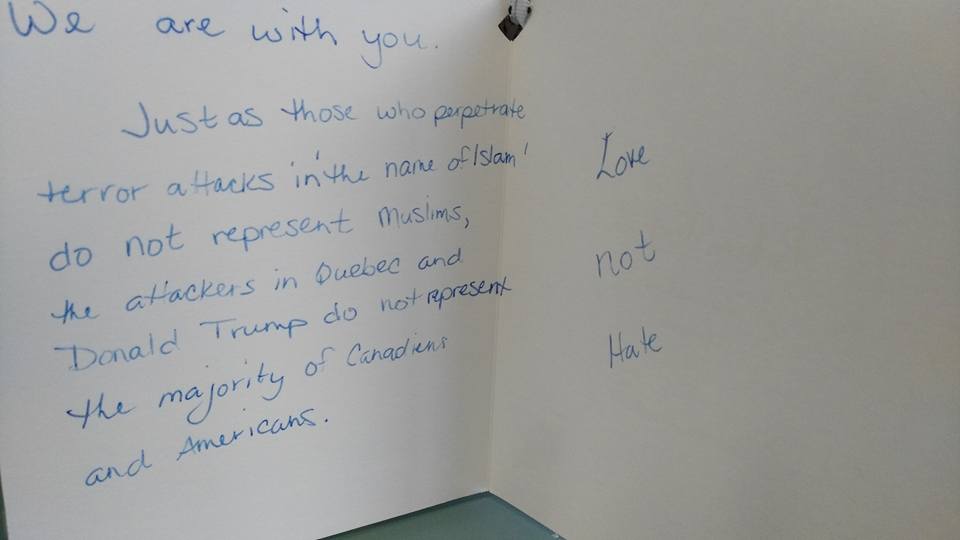 We are with you.
Just as those who perpetrate
terror attacks in 'the name of Islam'
do not represent Muslims,
the attackers in Quebec and
Donald Trump do not represent
the majority of Canadiens
and Americans.
Love
not
Hate